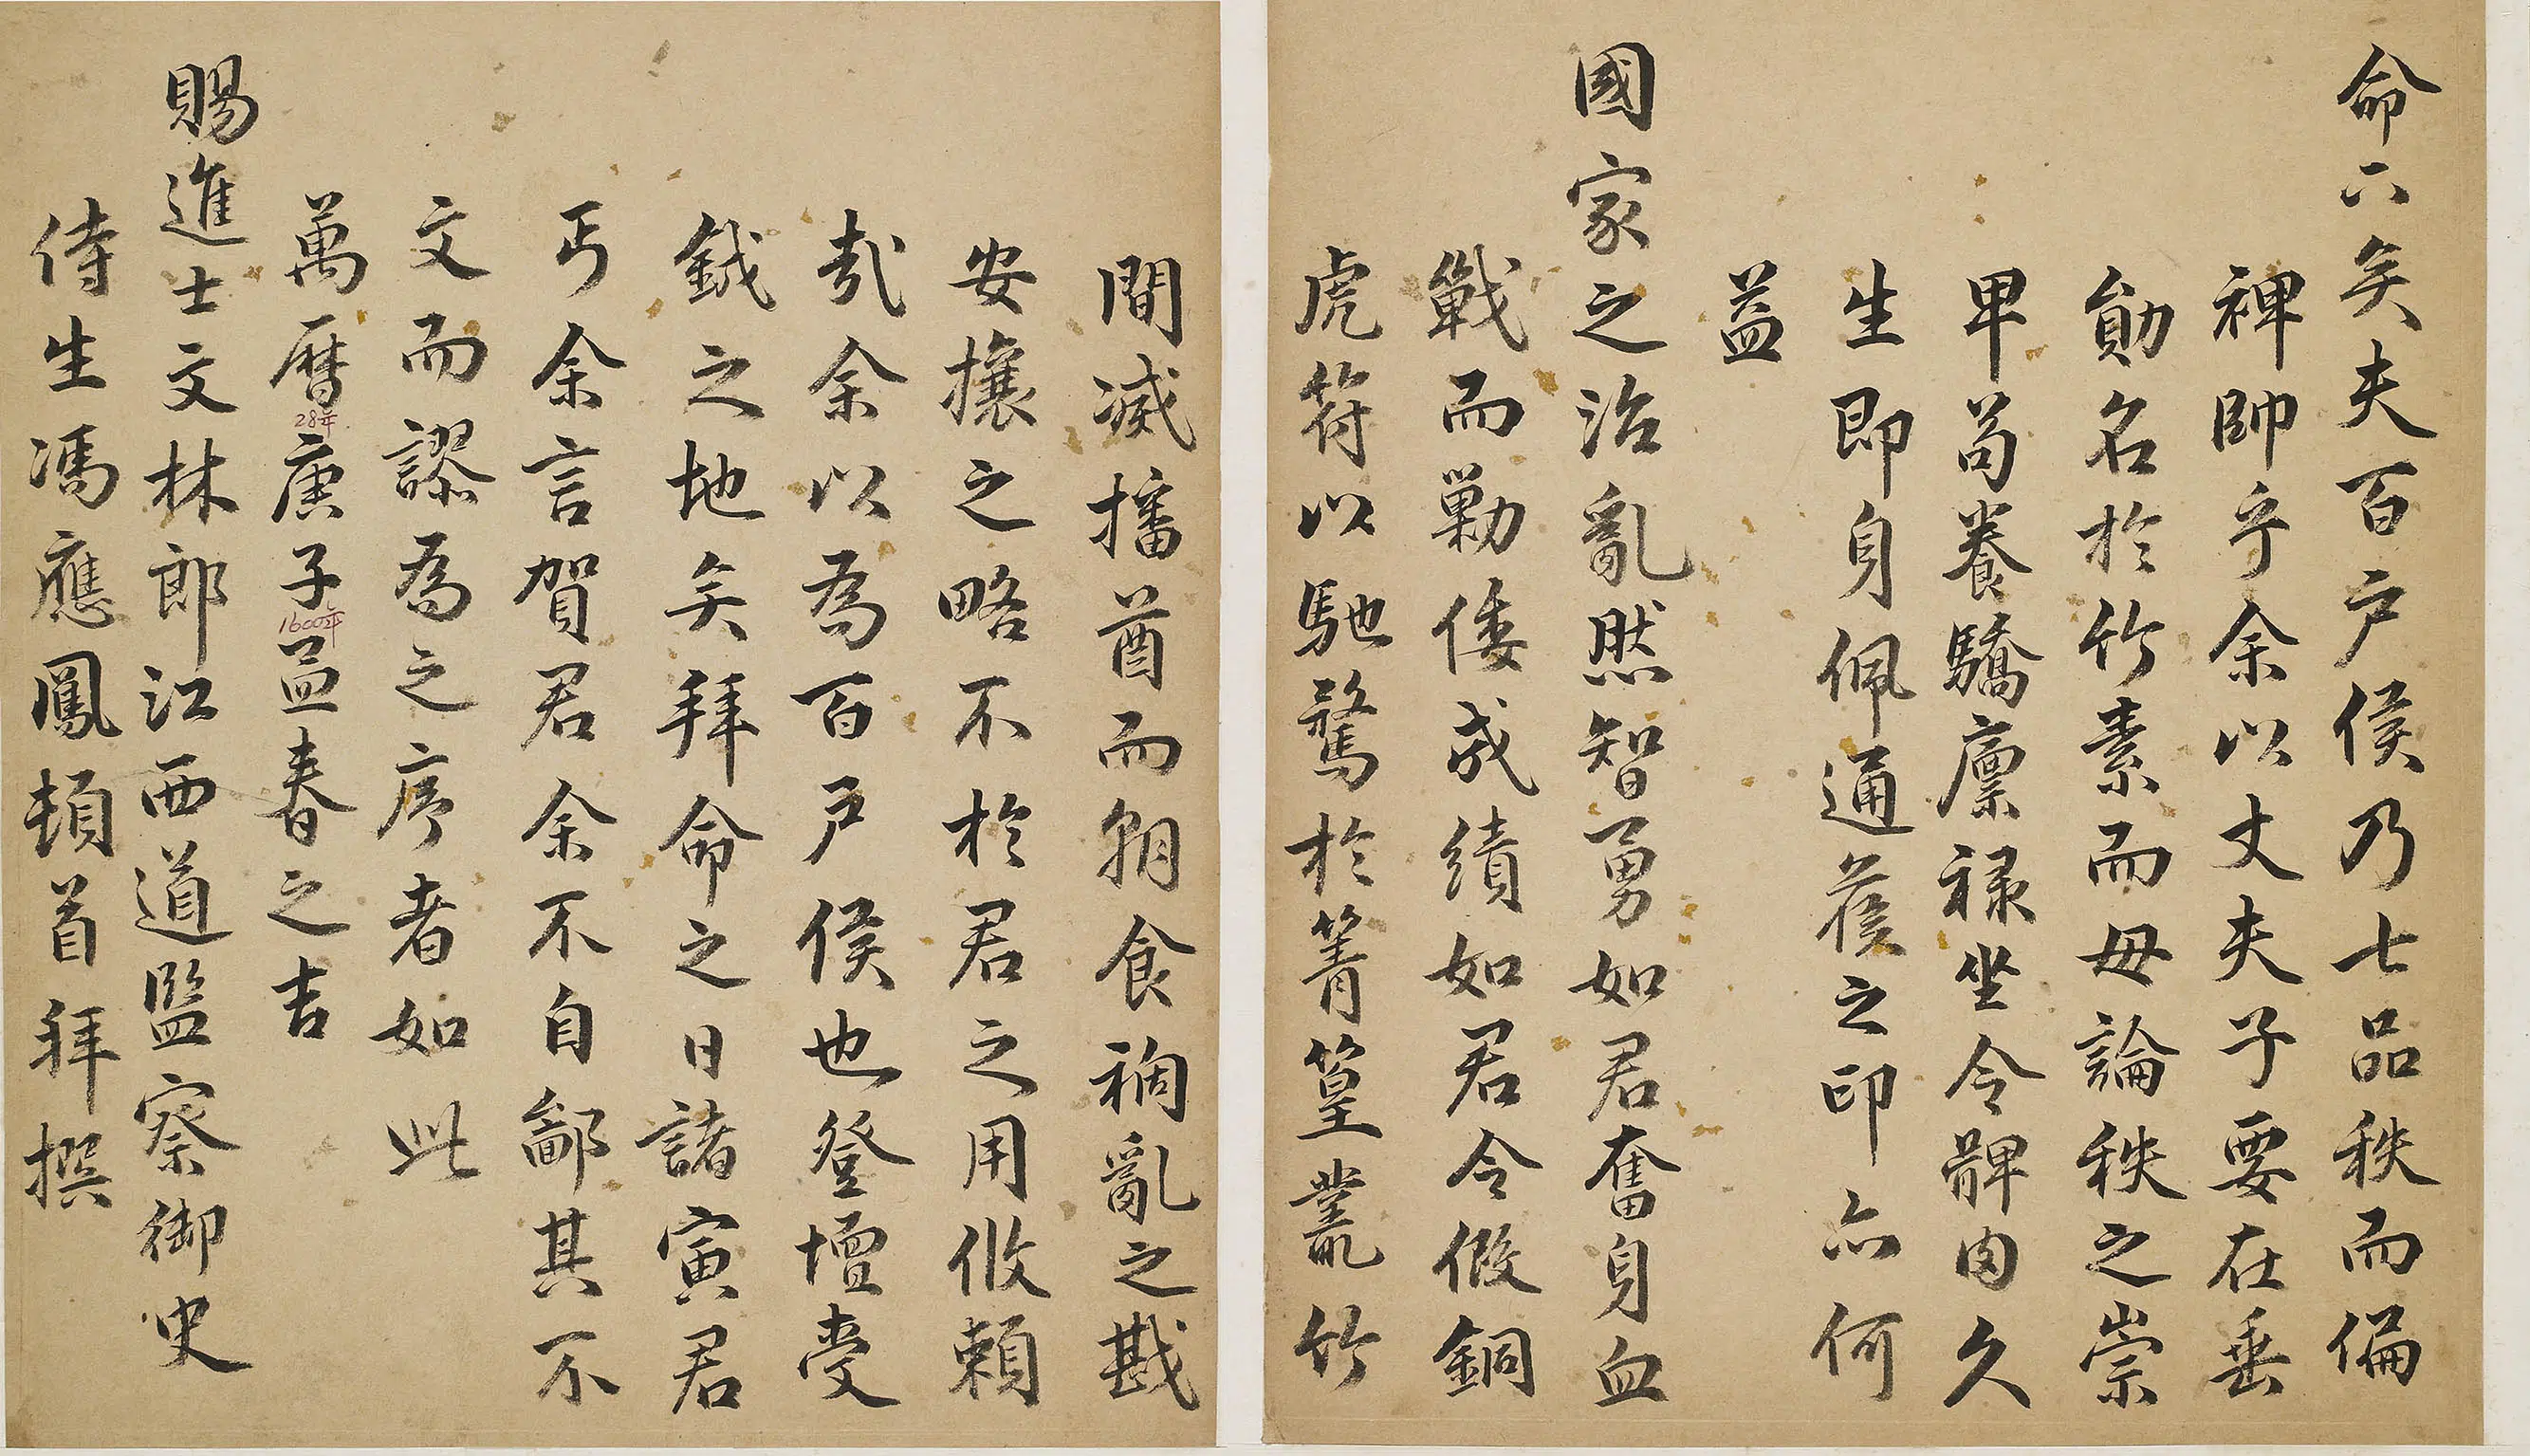 命下矣夫百户侯乃七品秩而偏
裨帥乎余以丈夫子要在垂
勛名於竹素而毋論秩之崇
卑苟養驕廩禄坐令髀肉久
生即身佩通侯之印亦何
益
國家之治亂然智勇如君奮身血
戰而勦倭成績如君令假銅
虎符以馳騖於箐篁叢竹
間滅播酋而朝食禍亂之戡
安攘之略不於君之用攸賴
哉余以為百戶侯也登壇受
鉞之地矣拜命之日諸寅君
丐余言賀君余不自鄙其不
文而謬為之序者如此
萬曆庚子孟春之吉
28年
1600年
賜進士文林郎江西道監察御史
侍生馮應鳳頓首拜撰